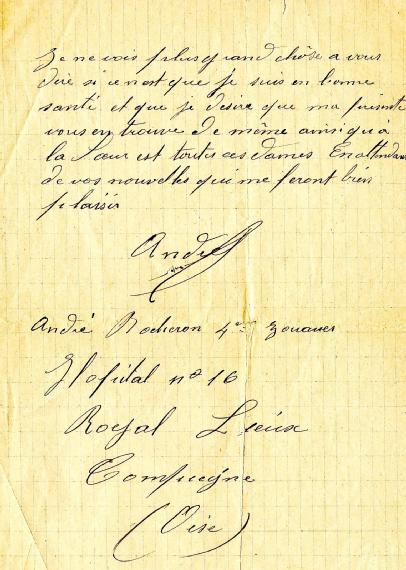 Je ne vois plus grand chôse a vous
dire si ce n'est que je suis en bonne
santé et que je désire que ma présente
vous en trouve de même ainsi qu'à
la Sœur est toutes ces dames En attendant
de vos nouvelles qui me feront bien
plaisir
André
André Rocheron 4e Zouaves
Hopital no 16
Royal Lieux
Compiegne
(Oise)